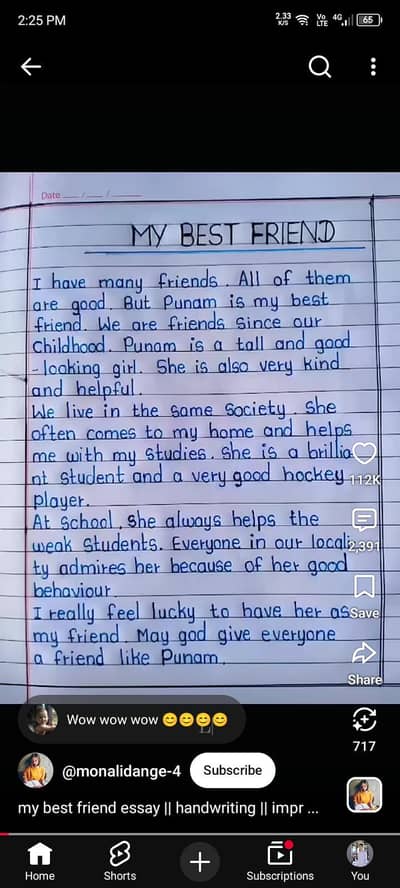 2:25 PM
2.33 K/S Vo LTE 4G 65
Date __/__/____
MY BEST FRIEND
I have many friends. All of them
are good. But Punam is my best
friend. We are friends since our
Childhood. Punam is a tall and good
-looking girl. She is also very kind
and helpful.
We live in the same Society. She
often comes to my home and helps
me with my studies. She is a brillia
nt student and a very good hockey
player.
At School, she always helps the
weak Students. Everyone in our locali
ty admires her because of her good
behaviour.
I really feel lucky to have her as
my friend. May god give everyone
a friend like Punam.
112K
2,391
Save
Share
717
Wow wow wow 😊😊😊😊
@monalidange-4 Subscribe
my best friend essay || handwriting || impr ...
Home Shorts Subscriptions You